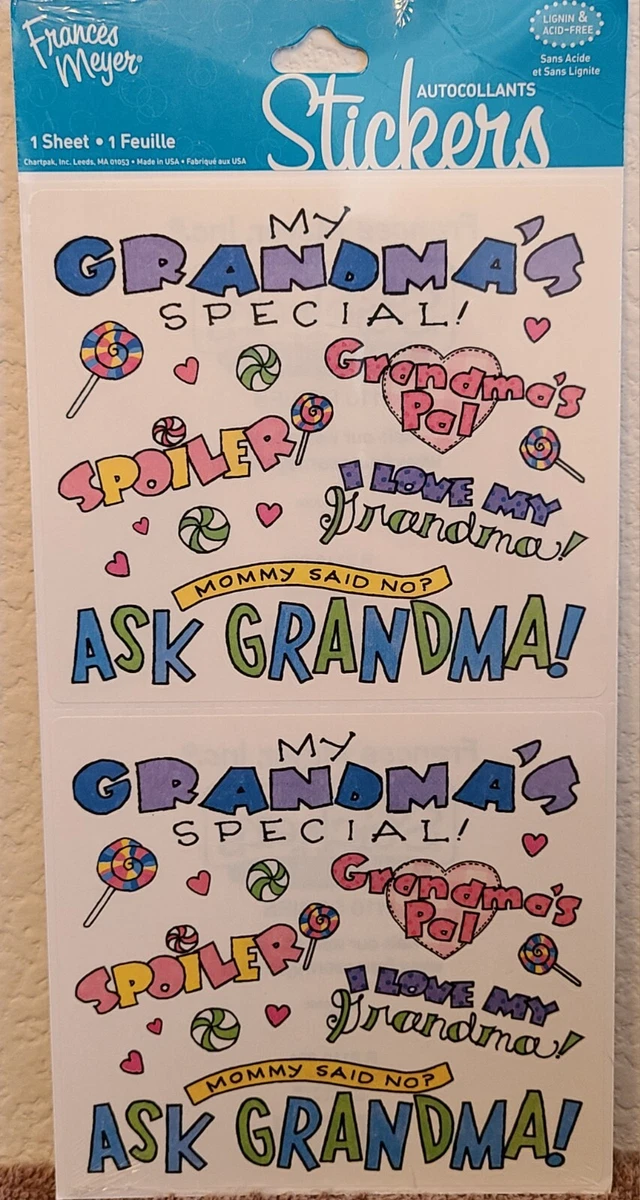 Frances
Meyer®
LIGNIN &
ACID-FREE
Sans Acide
et Sans Lignite
AUTOCOLLANTS
Stickers
1 Sheet • 1 Feuille
Chartpak, Inc. Leeds, MA 01053 • Made in USA • Fabriqué aux USA
MY
GRANDMA'S
SPECIAL!
Grandma's
Pal
SPOILER
I LOVE MY
Grandma!
MOMMY SAID NO?
ASK GRANDMA!
MY
GRANDMA'S
SPECIAL!
Grandma's
Pal
SPOILER
I LOVE MY
Grandma!
MOMMY SAID NO?
ASK GRANDMA!